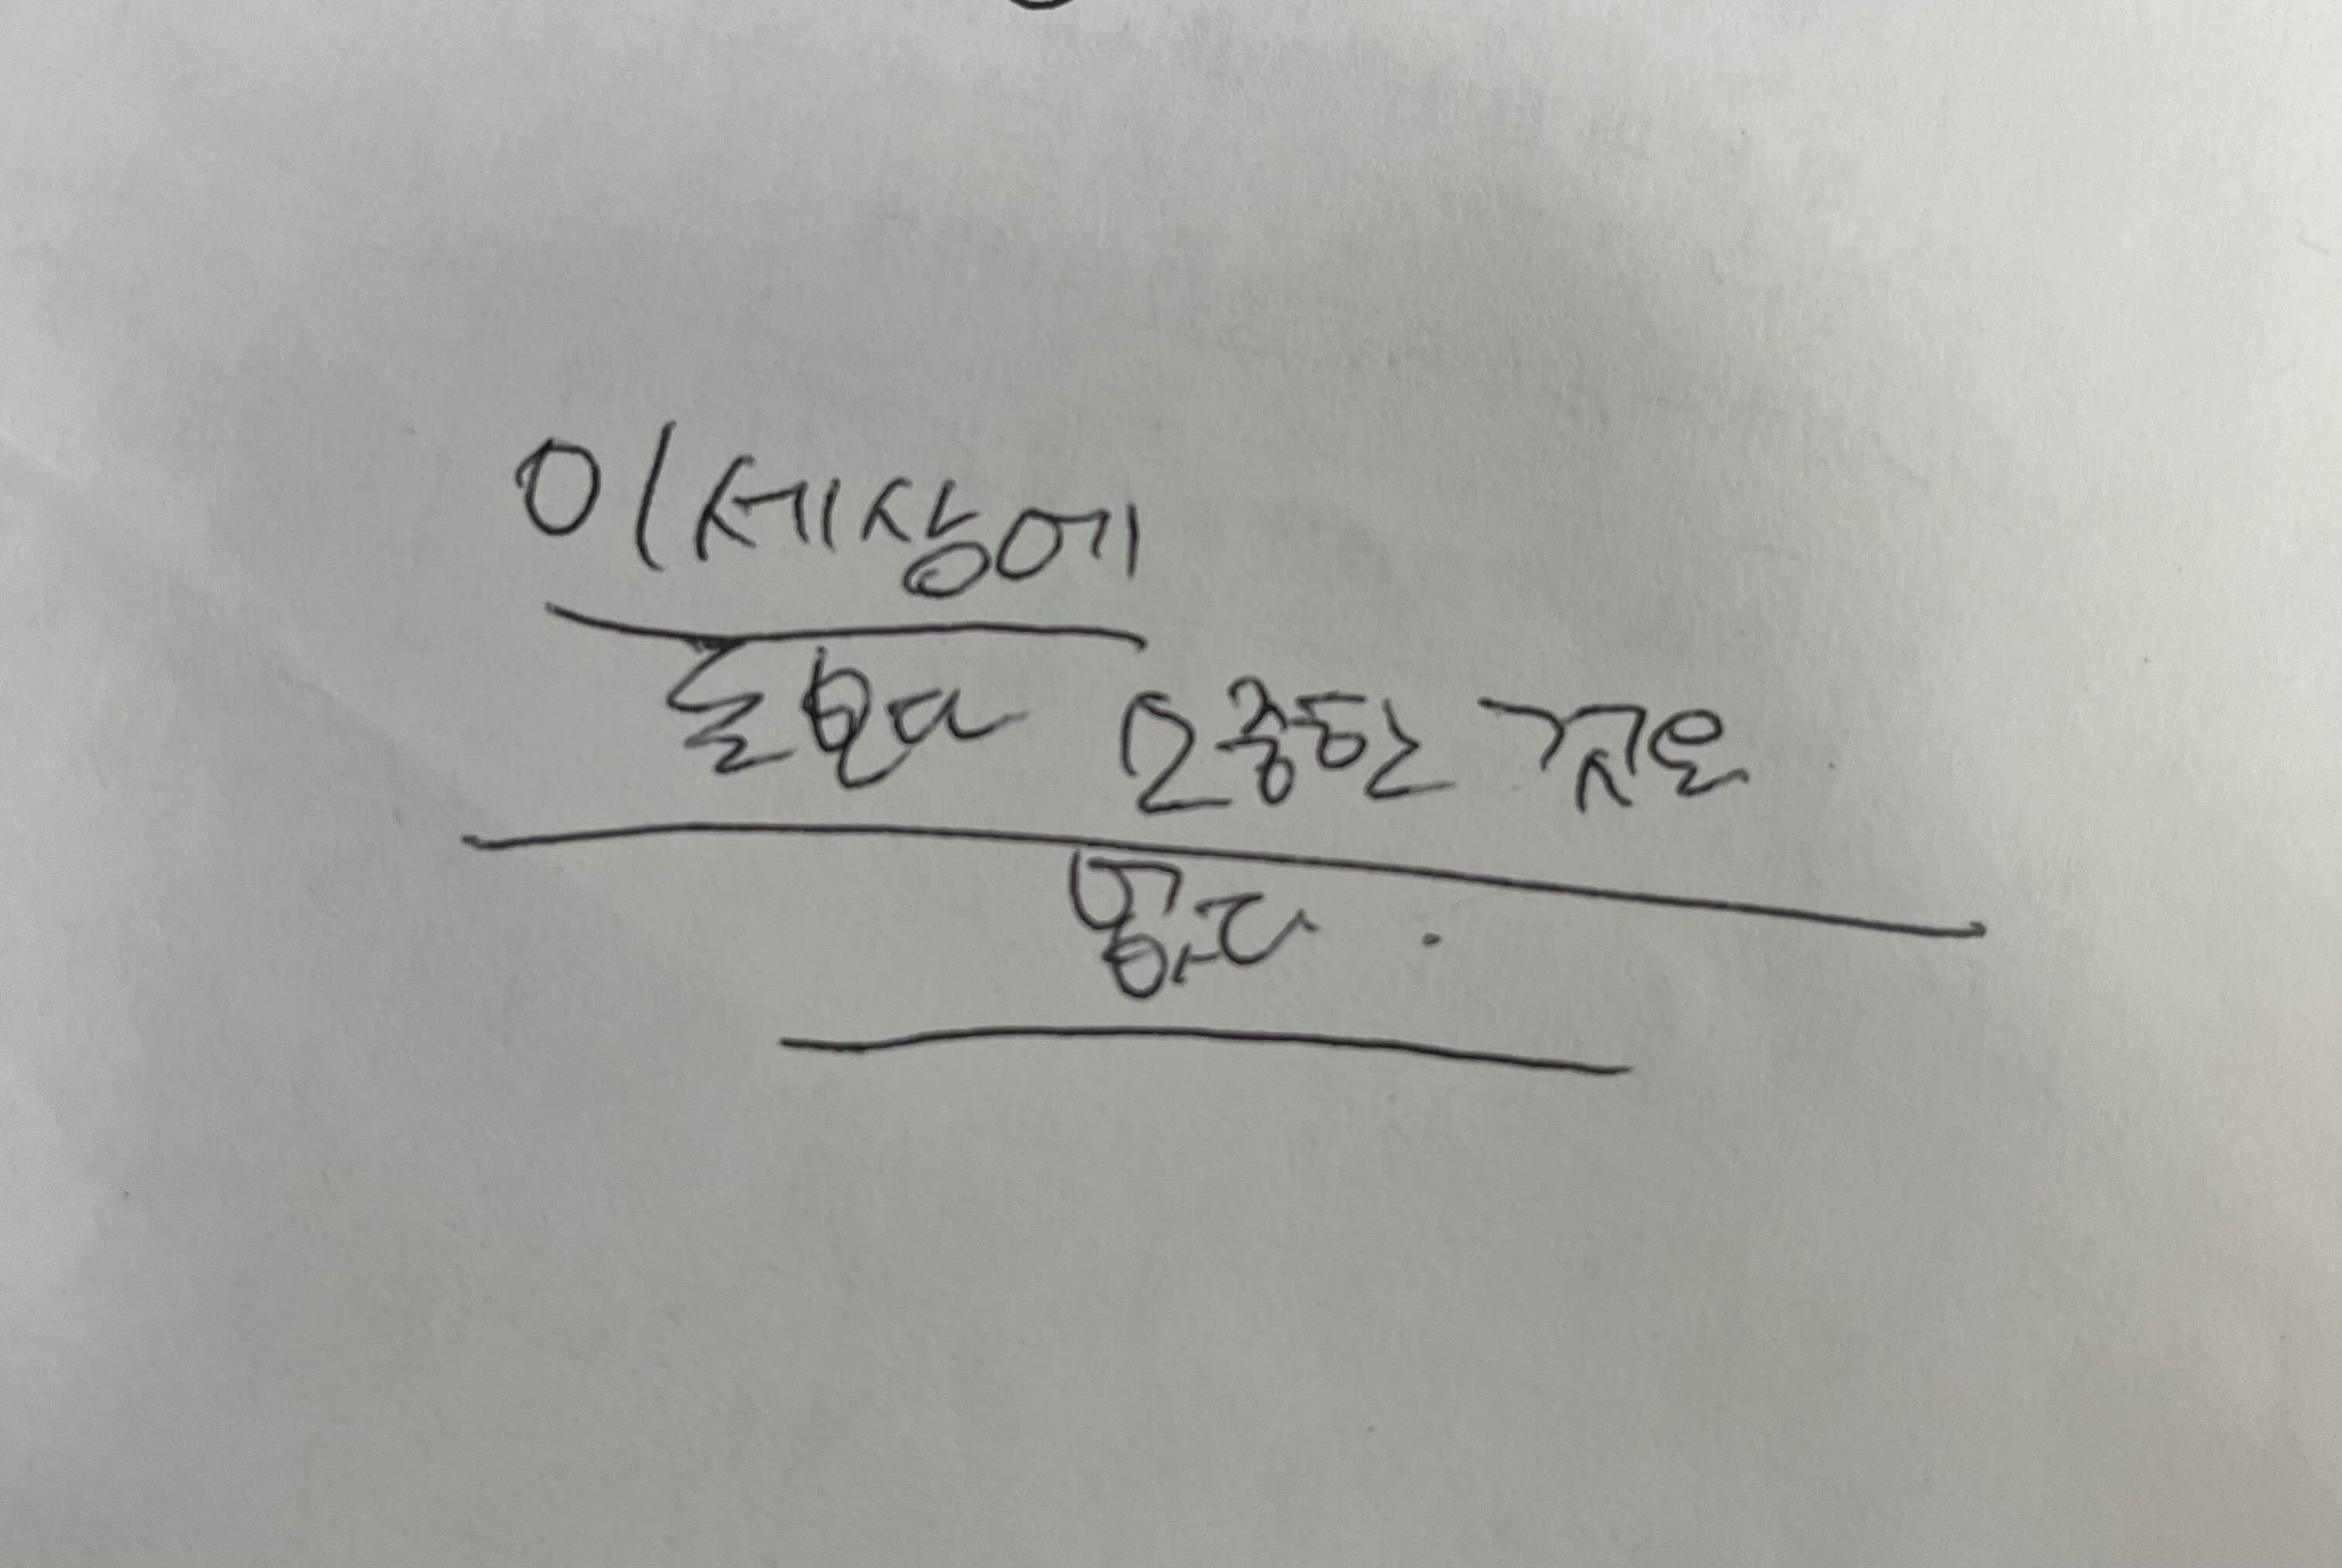 이 세상에
돈보다 소중한 것은
많다.